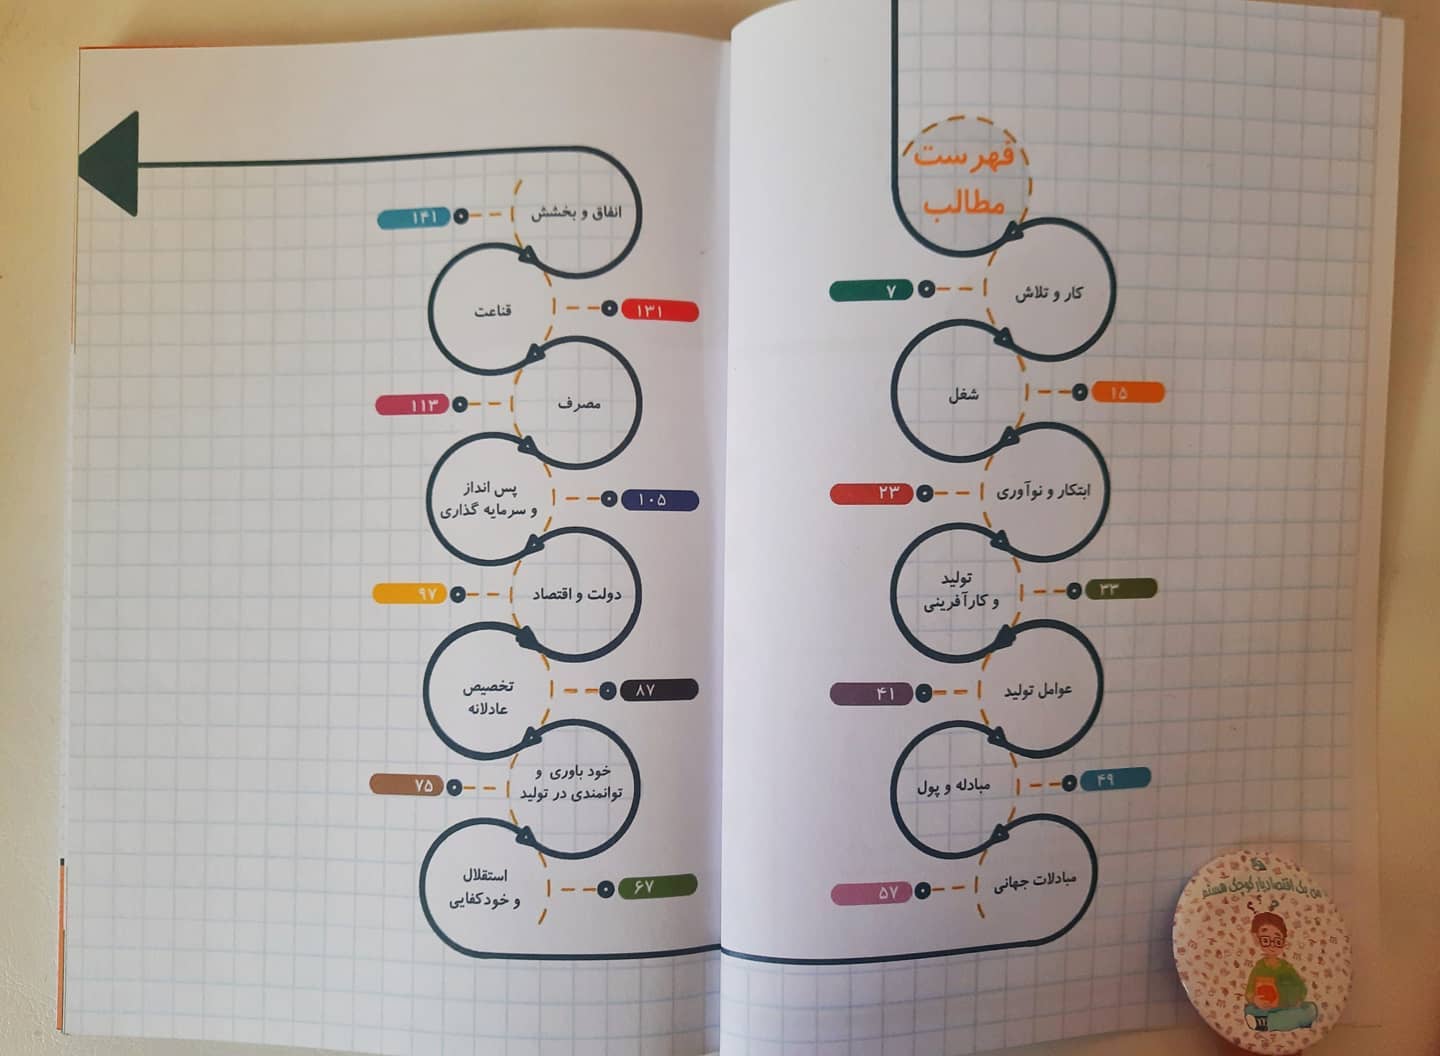 فهرست
مطالب
کار و تلاش
۷
شغل
۱۵
ابتکار و نوآوری
۲۳
تولید
و کارآفرینی
۳۳
عوامل تولید
۴۱
مبادله و پول
۴۹
مبادلات جهانی
۵۷
استقلال
و خودکفایی
۶۷
خود باوری و
توانمندی در تولید
۷۵
تخصیص
عادلانه
۸۷
دولت و اقتصاد
۹۷
پس انداز
و سرمایه گذاری
۱۰۵
مصرف
۱۱۳
قناعت
۱۳۱
انفاق و بخشش
۱۴۱
من یک اقتصادیار کوچک هستم